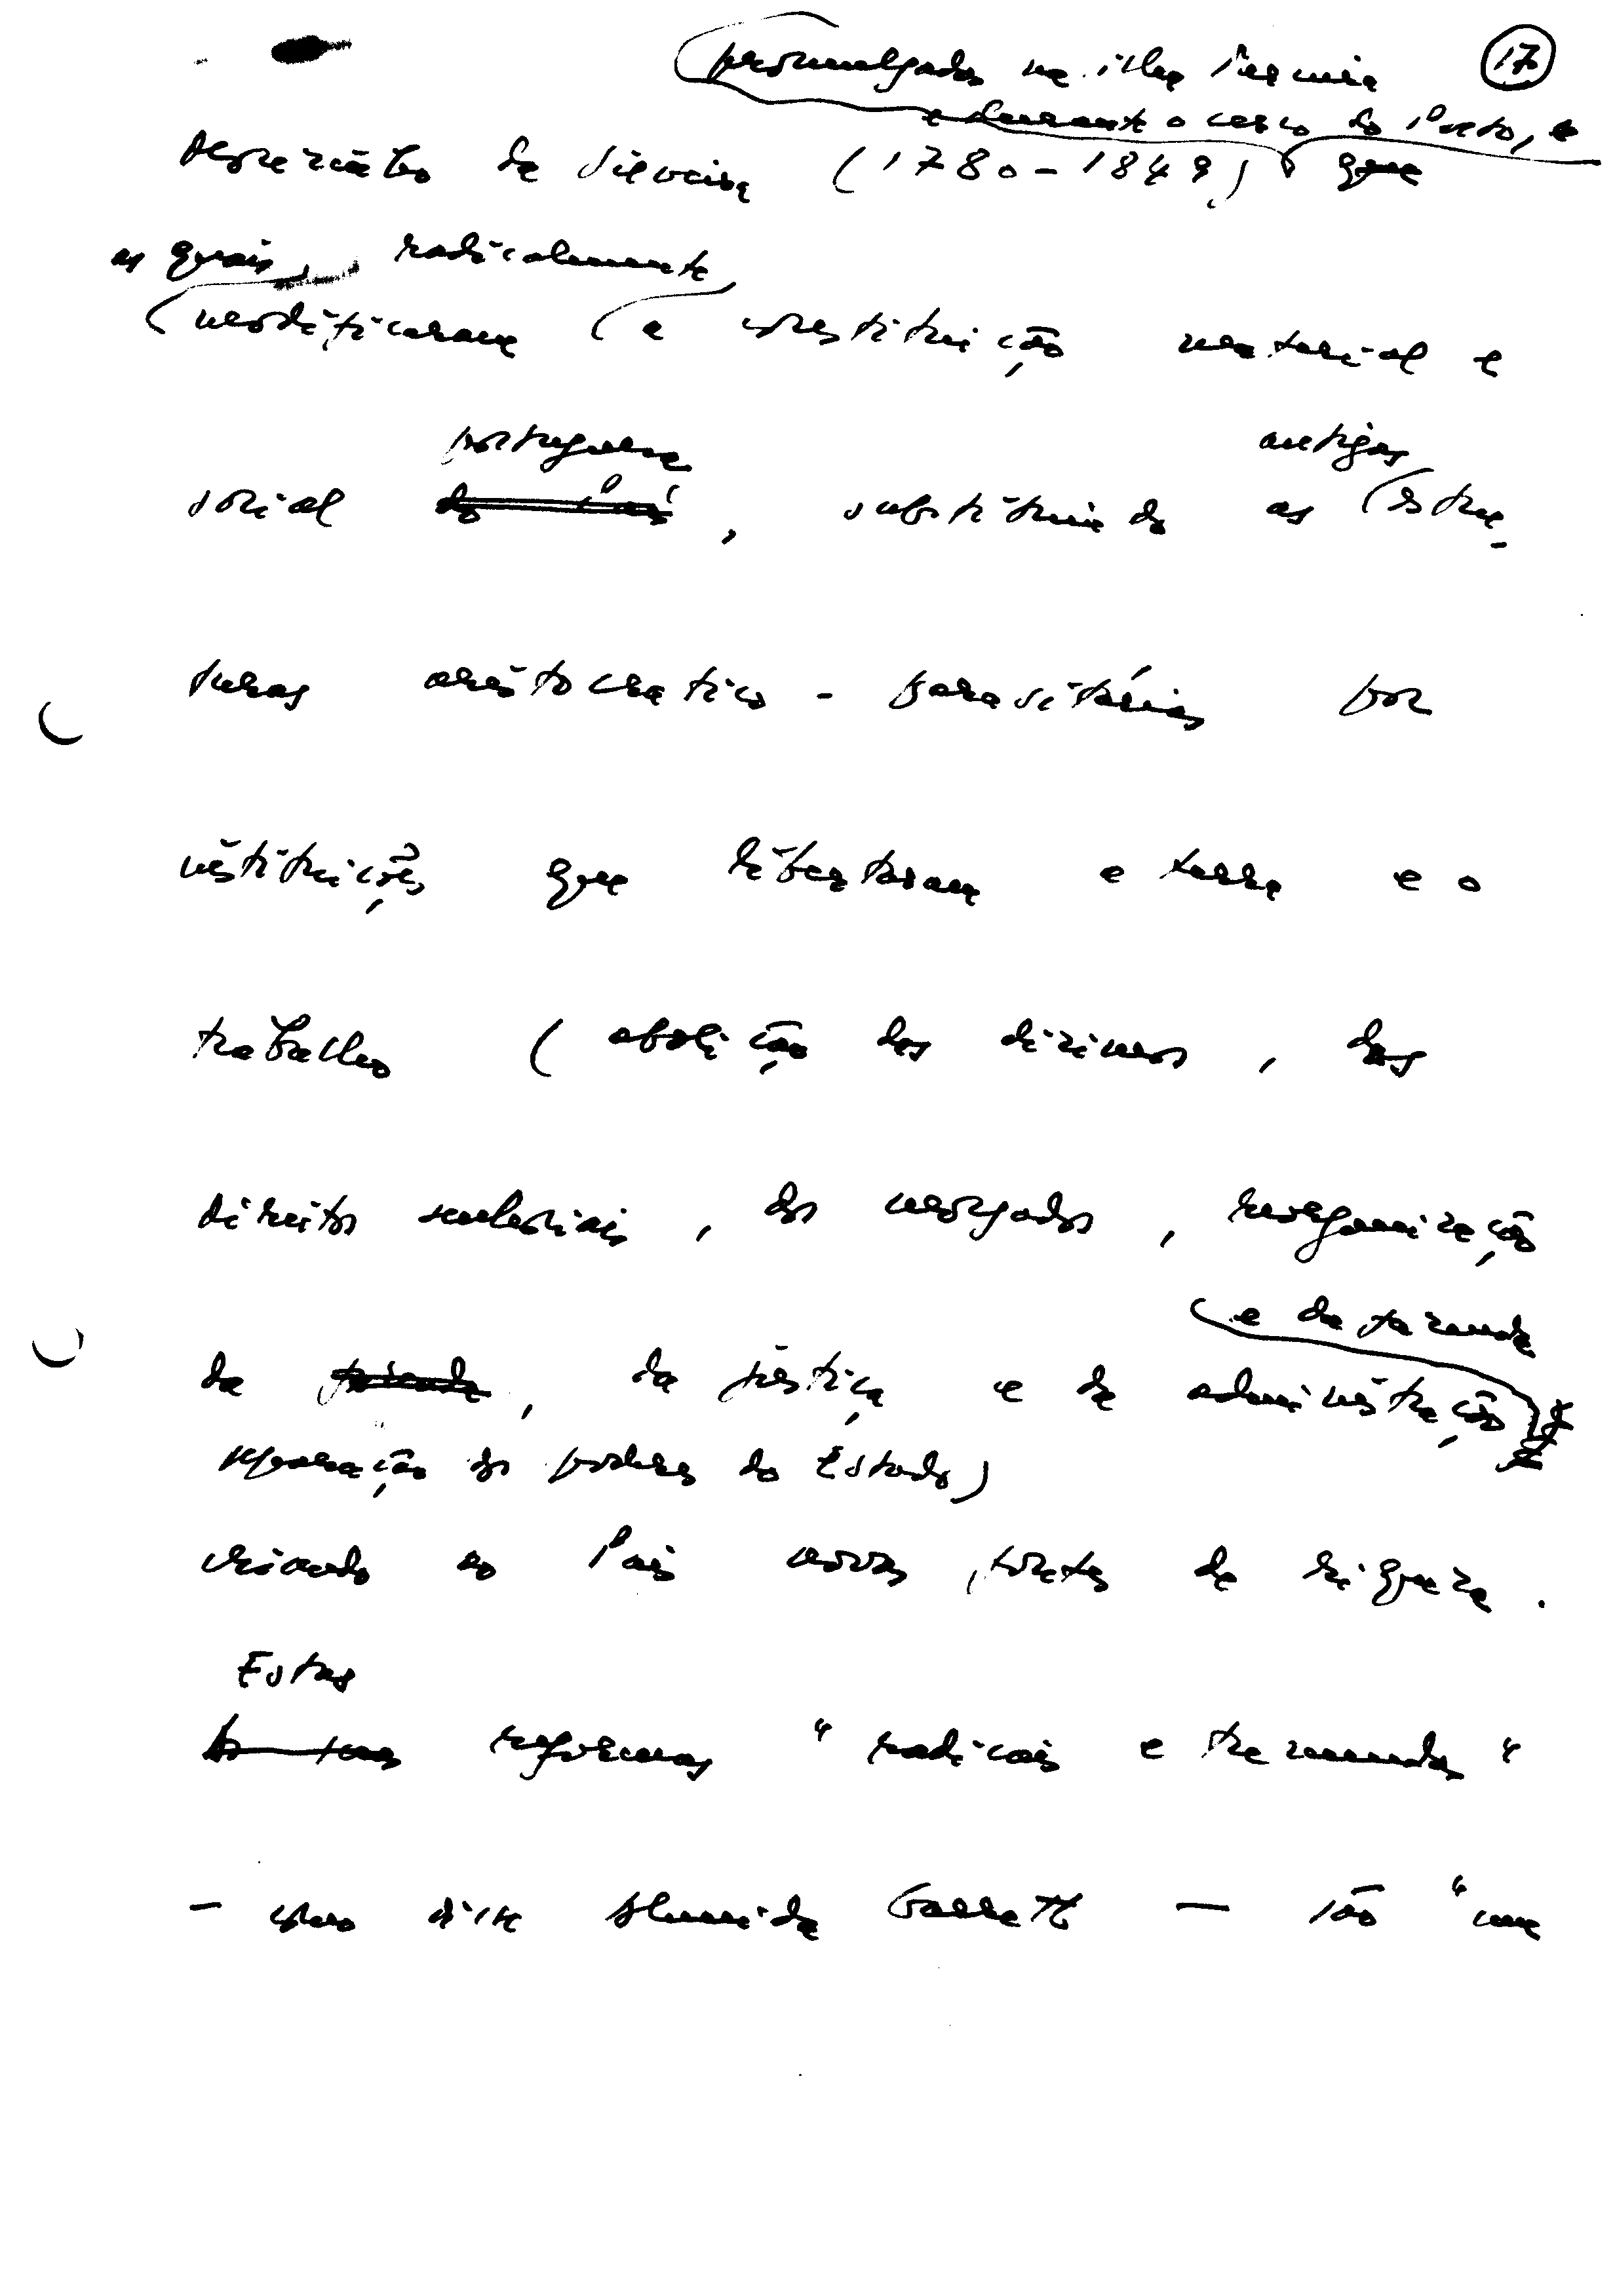 17
promulgadas na ilha Terceira
e durante o cerco do Porto, e
de Silveira (1780-1849) que
as quais, radicalmente
modificaram a constituição material e
portuguesa antigas
social do País, substituindo as estru-
turas aristocratico-parasitárias por
instituições que libertaram a terra e o
trabalho (abolição dos dizimos, dos
direitos senhoriais, dos morgados, reorganização
e da fazenda
da fazenda, da justiça e da administração,
separação dos poderes do Estado)
criando ao País novas fontes de riqueza.
Estas
As suas reformas "radicais e tremendas"
- como disse Almeida Garrett - são "uma